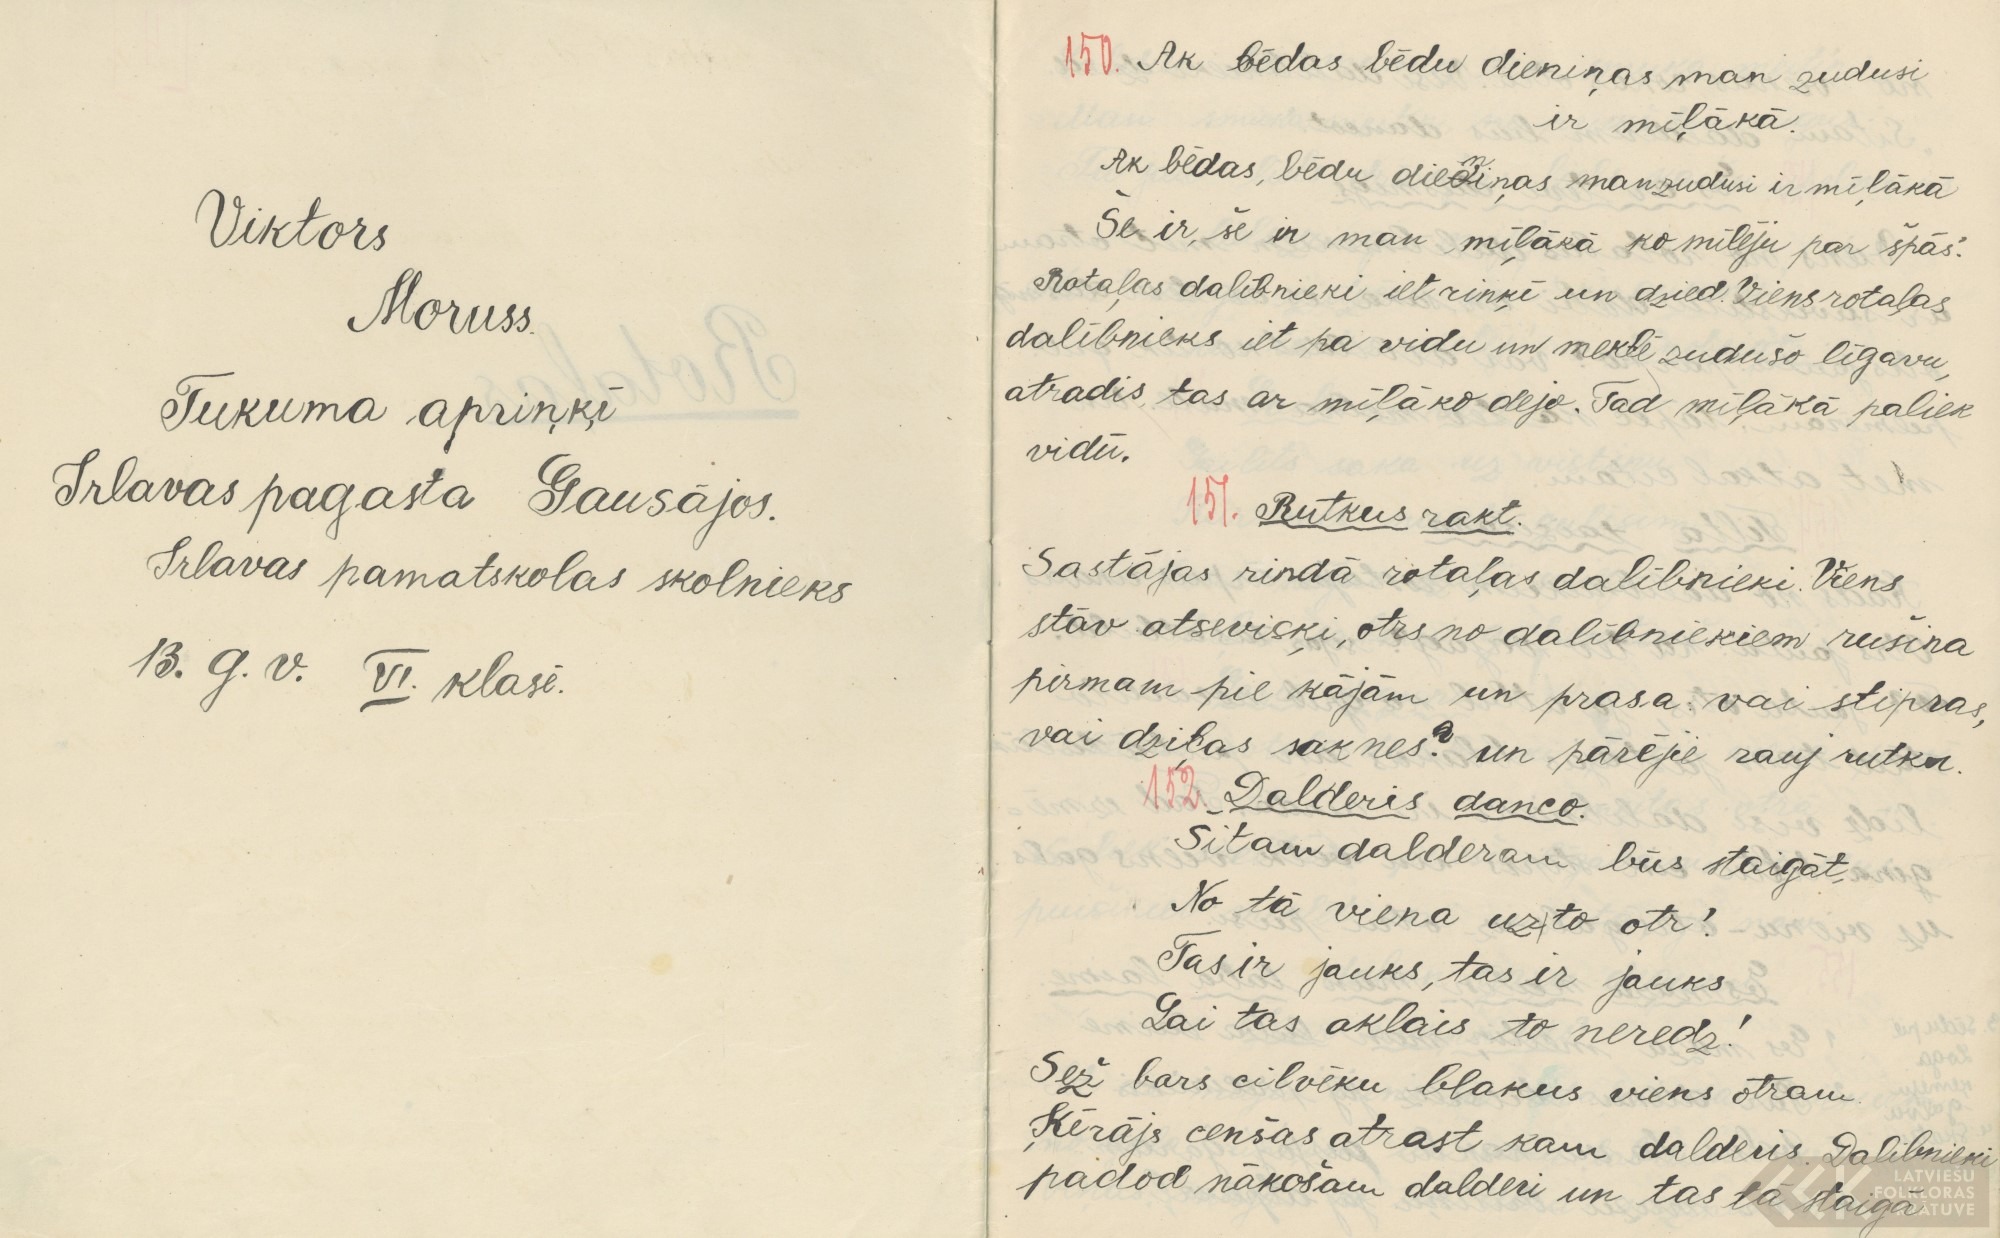 Viktors
Moruss.
Tukuma apriņķī
Irlavas pagasta Gausājos.
Irlavas pamatskolas skolnieks
13. g. v. VI. klasē.
150. Ak bēdas bēdu dieniņas man zudusi
ir mīļākā.
Ak bēdas, bēdu dieniņas man zudusi ir mīļākā
Še ir, še ir man mīļākā ko mīlēju par špās!
Rotaļas dalībnieki iet riņķī un dzied. Viens rotaļas
dalībnieks iet pa vidu un meklē zudušo līgavu,
atradis, tas ar mīļāko dejo. Tad mīļākā paliek
vidū.
151. Rutkus rakt.
Sastājas rindā rotaļas dalībnieki. Viens
stāv atseviķi, otrs no dalībniekiem rušina
pirmam pie kājām un prasa: vai stipras,
vai dziļas saknes? un pārējie rauj rutku.
152. Dalderis danco.
Šitam dalderam būs staigāt,
No tā viena uz to otr!
Tas ir jauks, tas ir jauks
Lai tas aklais to neredz!
Sēž bars cilvēku blakus viens otram.
Ķērājs cenšas atrast kam dalderis. Dalībnieki
padod nākošam dalderi un tas tā staigā
LATVIEŠU
FOLKLORAS
KRĀTUVE